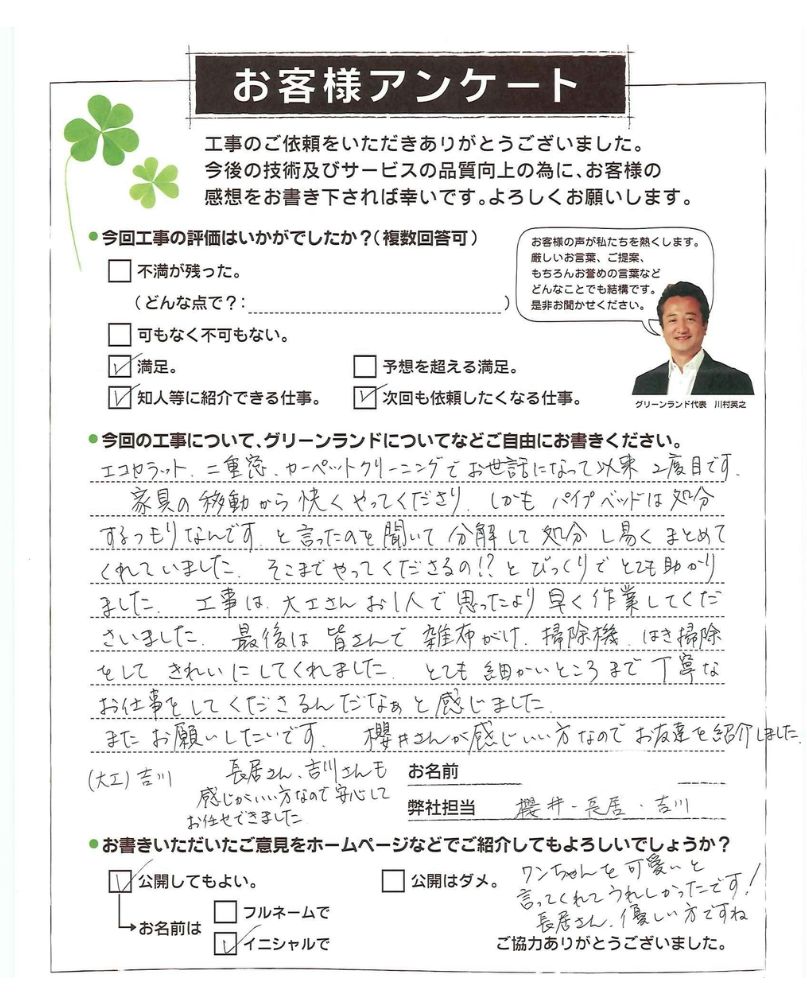 お客様アンケート
工事のご依頼をいただきありがとうございました。
今後の技術及びサービスの品質向上の為に、お客様の
感想をお書き下されば幸いです。よろしくお願いします。
●今回工事の評価はいかがでしたか？（複数回答可）
不満が残った。
（どんな点で？：）
可もなく不可もない。
満足。
予想を超える満足。
知人等に紹介できる仕事。
次回も依頼したくなる仕事。
お客様の声が私たちを熱くします。
厳しいお言葉、ご提案、
もちろんお誉めの言葉など
どんなことでも結構です。
是非お聞かせください。
グリーンランド代表 川村英之
●今回の工事について、グリーンランドについてなどご自由にお書きください。
エコカラット、二重窓、カーペットクリーニングでお世話になって以来2度目です。
家具の移動から快くやってくださり、しかもパイプベッドは処分
するつもりなんです、と言ったのを聞いて分解して処分し易くまとめて
くれていました。そこまでやってくださるの!?とびっくりでとても助かり
ました。工事は大工さんお1人で思ったより早く作業してくだ
さいました。最後は皆さんで雑布がけ、掃除機、はき掃除
をしてきれいにしてくれました。とても細かいところまで丁寧な
お仕事をしてくださるんだなぁと感じました。
またお願いしたいです。櫻井さんが感じいい方なのでお友達を紹介しました。
(大工)吉川
長居さん、吉川さんも
感じがいい方なので安心して
お任せできました
お名前
弊社担当 櫻井・長居・吉川
●お書きいただいたご意見をホームページなどでご紹介してもよろしいでしょうか？
公開してもよい。
公開はダメ。
お名前は
フルネームで
イニシャルで
ワンちゃんを可愛いと
言ってくれてうれしかったです!
長居さん、優しい方ですね
ご協力ありがとうございました。